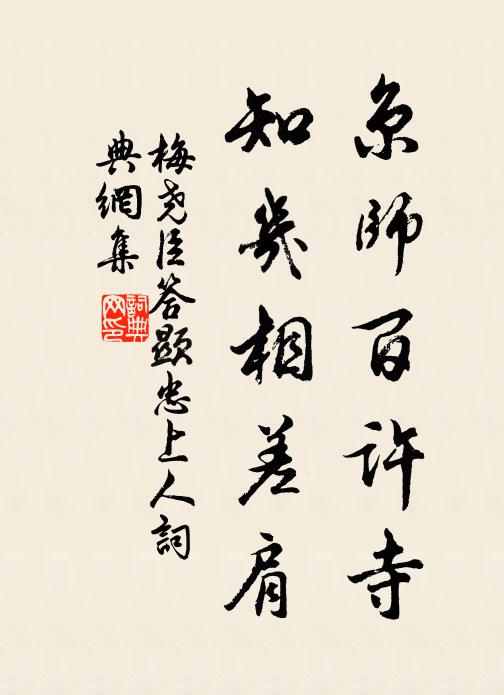 京師百許寺
知幾相差肩
梅堯臣答顯忠上人詞
典網集
詞典
网印